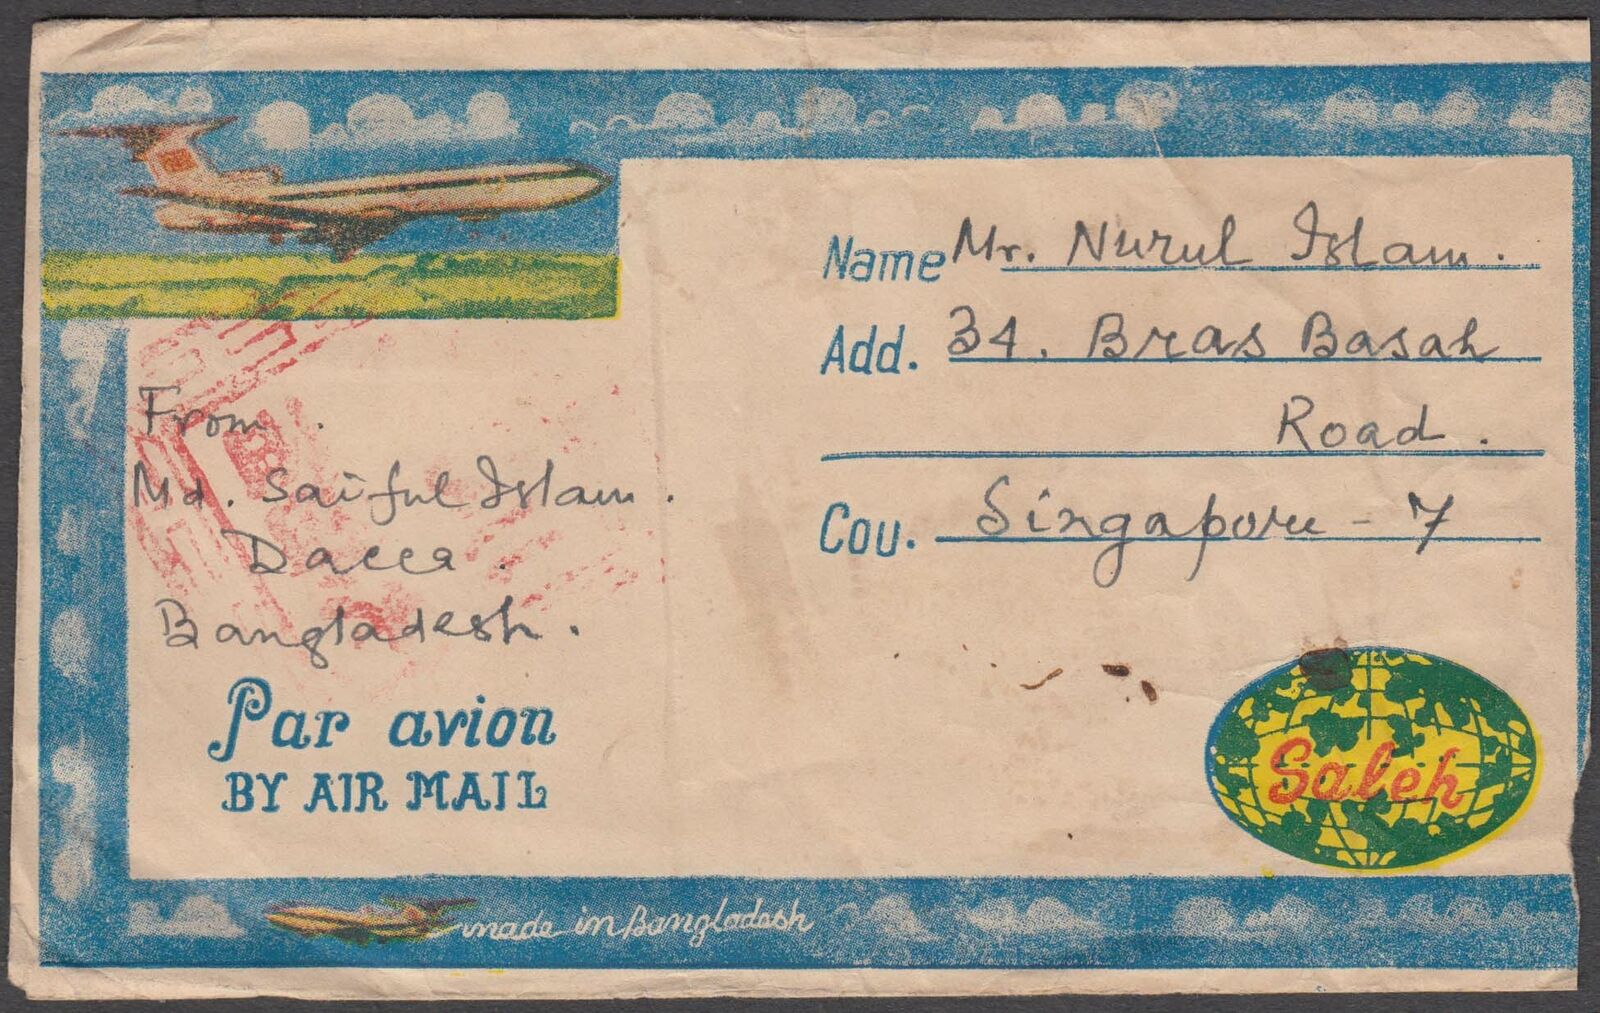 Name Mr. Nurul Islam.
Add. 34. Bras Basah
Road.
Cou. Singapore - 7
From.
Md. Saiful Islam.
Dacca.
Bangladesh.
Par avion
BY AIR MAIL
Saleh
made in Bangladesh